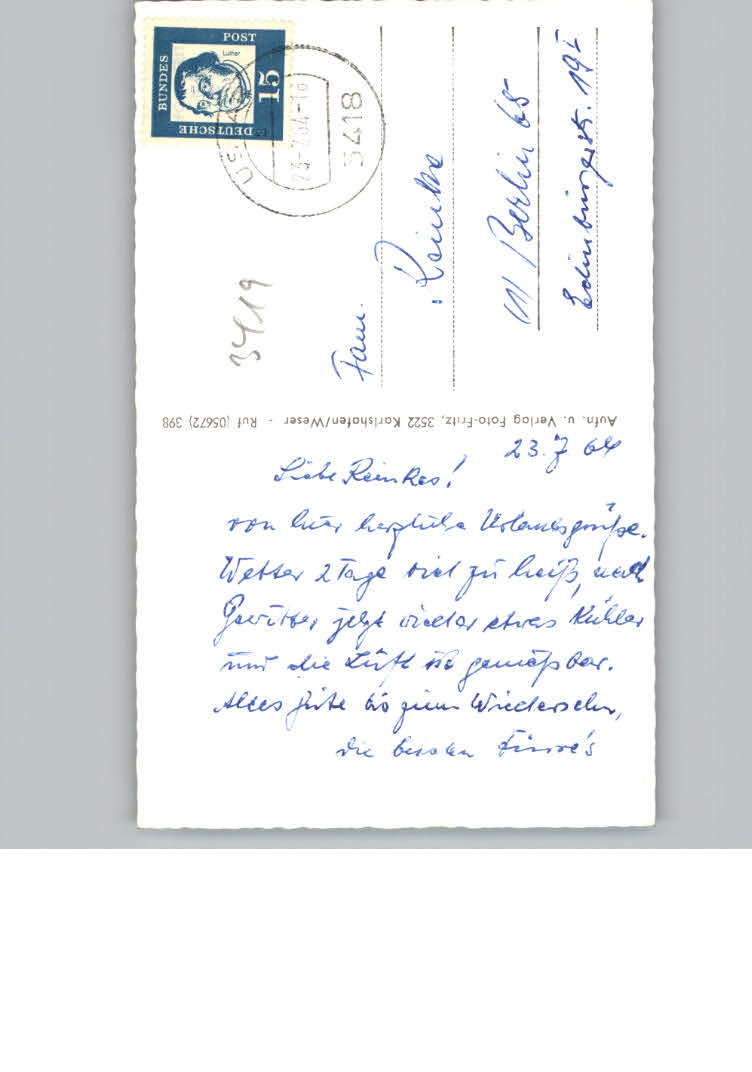 DEUTSCHE
BUNDES
POST
15
Luther
23.-7.64-16
3418
3419
Fam.
Reinke
1 Berlin 65
Edinburgerstr. 19 I
Aufn. u. Verlag Foto-Fritz, 3522 Karlshafen/Weser - Ruf (05672) 398
23.7 64
Liebe Reinkes!
von hier herzliche Urlaubsgrüße.
Wetter 2 Tage viel zu heiß, nach
Gewitter jetzt wieder etwas kühler
und die Luft ist genießbar.
Alles Gute bis zum Wiedersehn,
die beiden